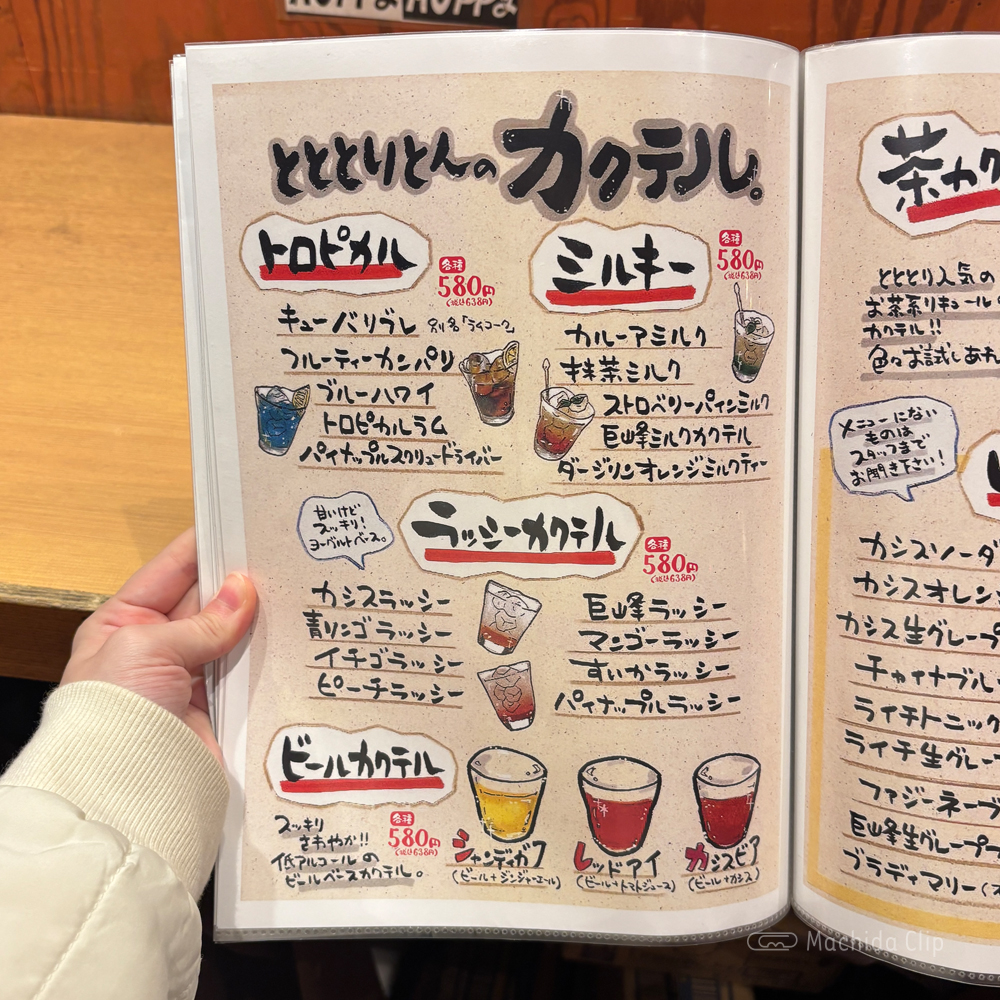 とととりとんのカクテル。
トロピカル
各種
580円
(税込638円)
キューバリブレ 別名「ラムコーク」
フルーティーカンパリ
ブルーハワイ
トロピカルラム
パイナップルスクリュードライバー
ミルキー
各種
580円
(税込638円)
カルーアミルク
抹茶ミルク
ストロベリーパインミルク
巨峰ミルクカクテル
ダージリンオレンジミルクティー
甘いけど
スッキリ!
ヨーグルトベース。
ラッシーカクテル
各種
580円
(税込638円)
カシスラッシー
青リンゴラッシー
イチゴラッシー
ピーチラッシー
巨峰ラッシー
マンゴーラッシー
すいかラッシー
パイナップルラッシー
ビールカクテル
スッキリ
さわやか!!
低アルコールの
ビールベースカクテル。
各種
580円
(税込638円)
シャンディガフ
(ビール+ジンジャーエール)
レッドアイ
(ビール+トマトジュース)
カシスビア
(ビール+カシス)
茶カク
とととり人気の
お茶系リキュール
カクテル!!
色々お試しあれ
メニューにない
ものは
スタッフまで
お聞き下さい!
カシスソーダ
カシスオレン
カシス生グレープ
チャイナブル
ライチトニック
ライチ生グレー
ファジーネーブ
巨峰生グレープ
ブラディマリー
Machida Clip